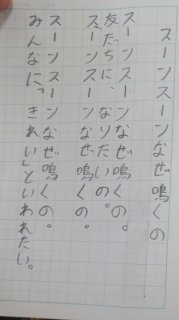 スーンスーンなぜ鳴くの
スーンスーンなぜ鳴くの。
友だちに、なりたいの。
スーンスーンなぜ鳴くの。
スーンスーンなぜ鳴くの。
みんなに「きれい」といわれたい。